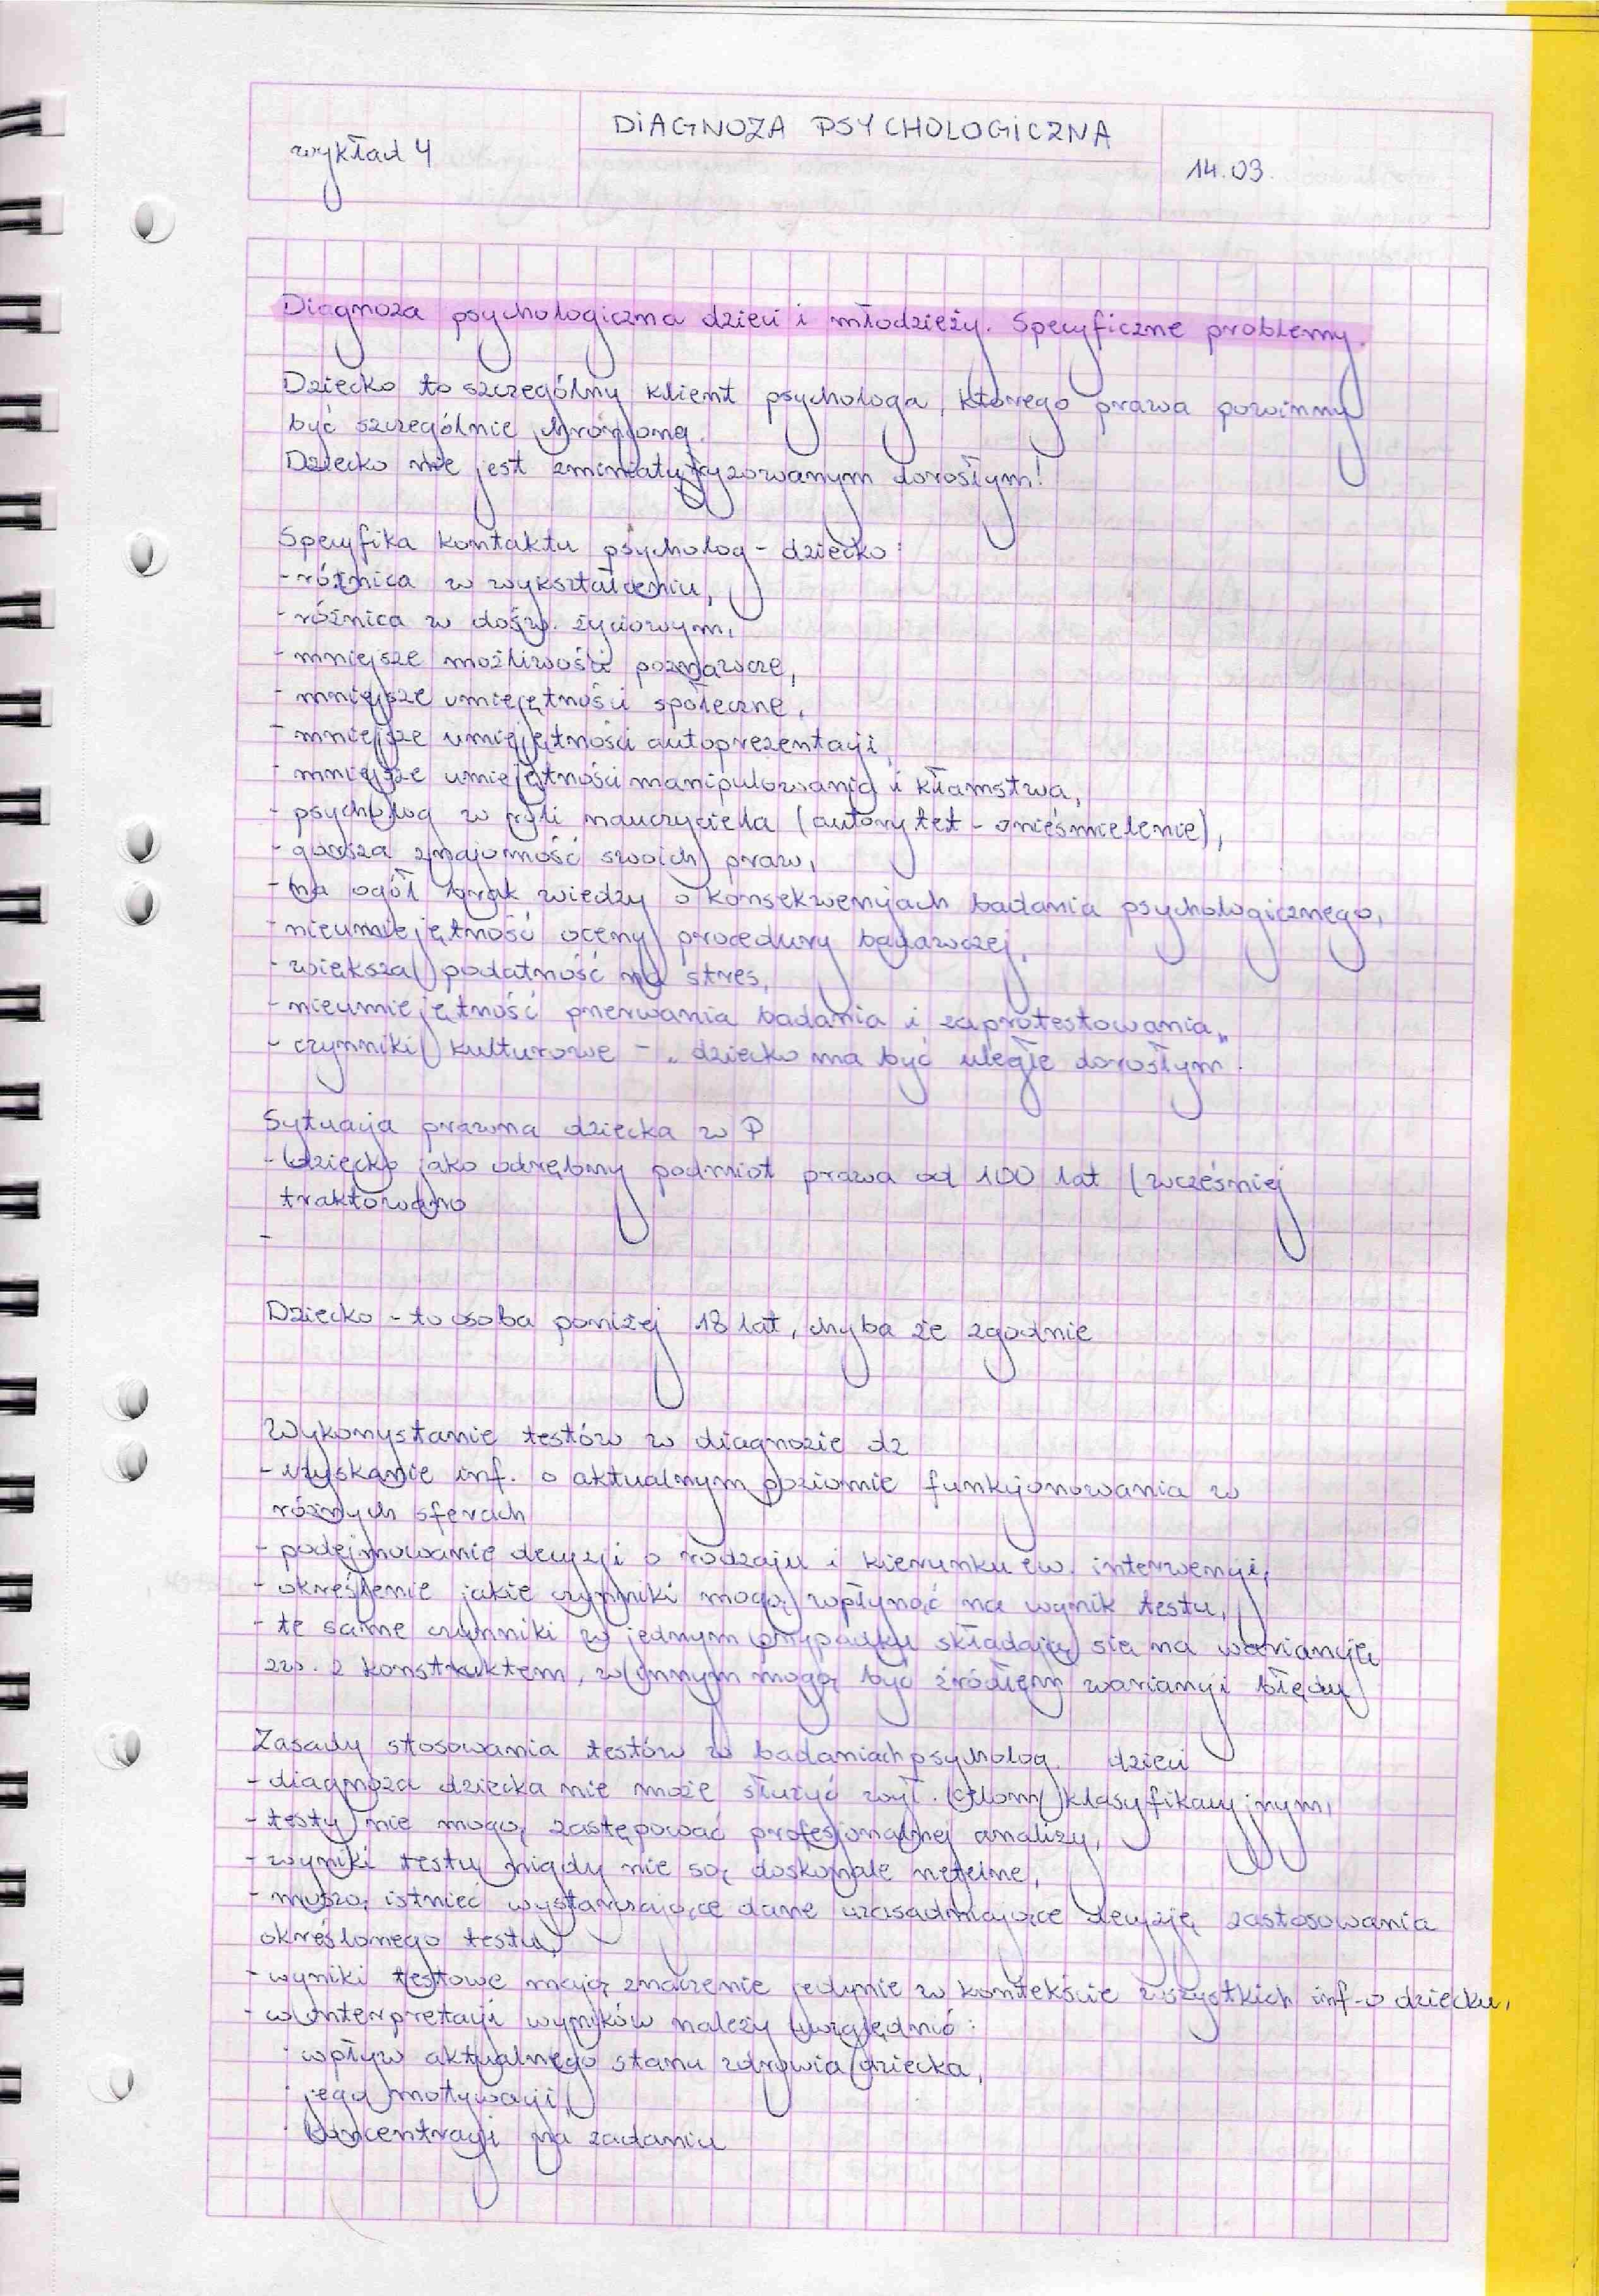 wykład 4
DIAGNOZA PSYCHOLOGICZNA
14.03.
Diagnoza psychologiczna dzieci i młodzieży. Specyficzne problemy.
Dziecko to szczególny klient psychologa, którego prawa powinny
być szczególnie chronione.
Dziecko nie jest zminiaturyzowanym dorosłym!
Specyfika kontaktu psycholog - dziecko:
- różnica w wykształceniu,
- różnica w dośw. życiowym,
- mniejsze możliwości poznawcze,
- mniejsze umiejętności społeczne,
- mniejsze umiejętności autoprezentacji,
- mniejsze umiejętności manipulowania i kłamstwa,
- psycholog w roli nauczyciela (autorytet - onieśmielenie),
- gorsza znajomość swoich praw,
- na ogół brak wiedzy o konsekwencjach badania psychologicznego,
- nieumiejętność oceny procedury badawczej,
- większa podatność na stres,
- nieumiejętność przerwania badania i zaprotestowania,
- czynniki kulturowe - „dziecko ma być uległe dorosłym".
Sytuacja prawna dziecka w P
- dziecko jako odrębny podmiot prawa od 100 lat (wcześniej
traktowano
-
Dziecko - to osoba poniżej 18 lat, chyba że zgodnie
Wykorzystanie testów w diagnozie dz
- uzyskanie inf. o aktualnym poziomie funkcjonowania w
różnych sferach
- podejmowanie decyzji o rodzaju i kierunku ew. interwencji,
- określenie jakie czynniki mogą wpłynąć na wynik testu,
- te same czynniki w jednym przypadku składają się na wariancję
zw. z konstruktem, w innym mogą być źródłem wariancji błędu
Zasady stosowania testów w badaniach psycholog. dzieci
- diagnoza dziecka nie może służyć wył. celom klasyfikacyjnym,
- testy nie mogą zastępować profesjonalnej analizy,
- wyniki testu nigdy nie są doskonale rzetelne,
- muszą istnieć wystarczające dane uzasadniające decyzję zastosowania
określonego testu,
- wyniki testowe mają znaczenie jedynie w kontekście wszystkich inf. o dziecku,
- w interpretacji wyników należy uwzględnić:
· wpływ aktualnego stanu zdrowia dziecka,
· jego motywacji,
· koncentracji na zadaniu